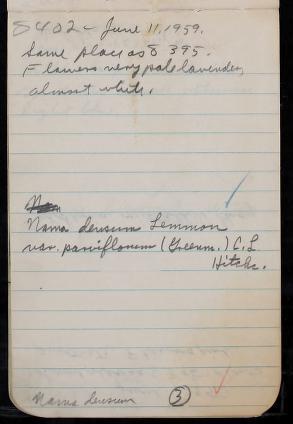 8402 - June 11, 1959.
Same place as 8395.
Flowers very pale lavender,
almost white.
Nama densum Lemmon
var. parviflorum (Greenm.) C. L.
Hitchc.
Nama densum
3